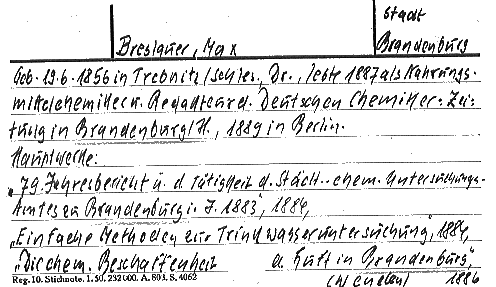 Breslauer, Max
Stadt
Brandenburg
Geb. 19.6.1856 in Trebnitz/Schles., Dr., lebte 1887 als Nahrungs-
mittelchemiker u. Redakteur d. "Deutschen Chemiker-Zei-
tung in Brandenburg/H., 1889 in Berlin.
Hauptwerke:
"79. Jahresbericht ü. d. Tätigkeit d. Städt.-chem. Untersuchungs-
Amtes zu Brandenburg i. J. 1883", 1884,
"Einfache Methoden zur Trinkwasseruntersuchung", 1884,
"Die chem. Beschaffenheit d. Luft in Brandenburg"
Reg. 10. Stichnote. 1. 50. 232 000. A. 803. S. 4062
(wenden) 1886